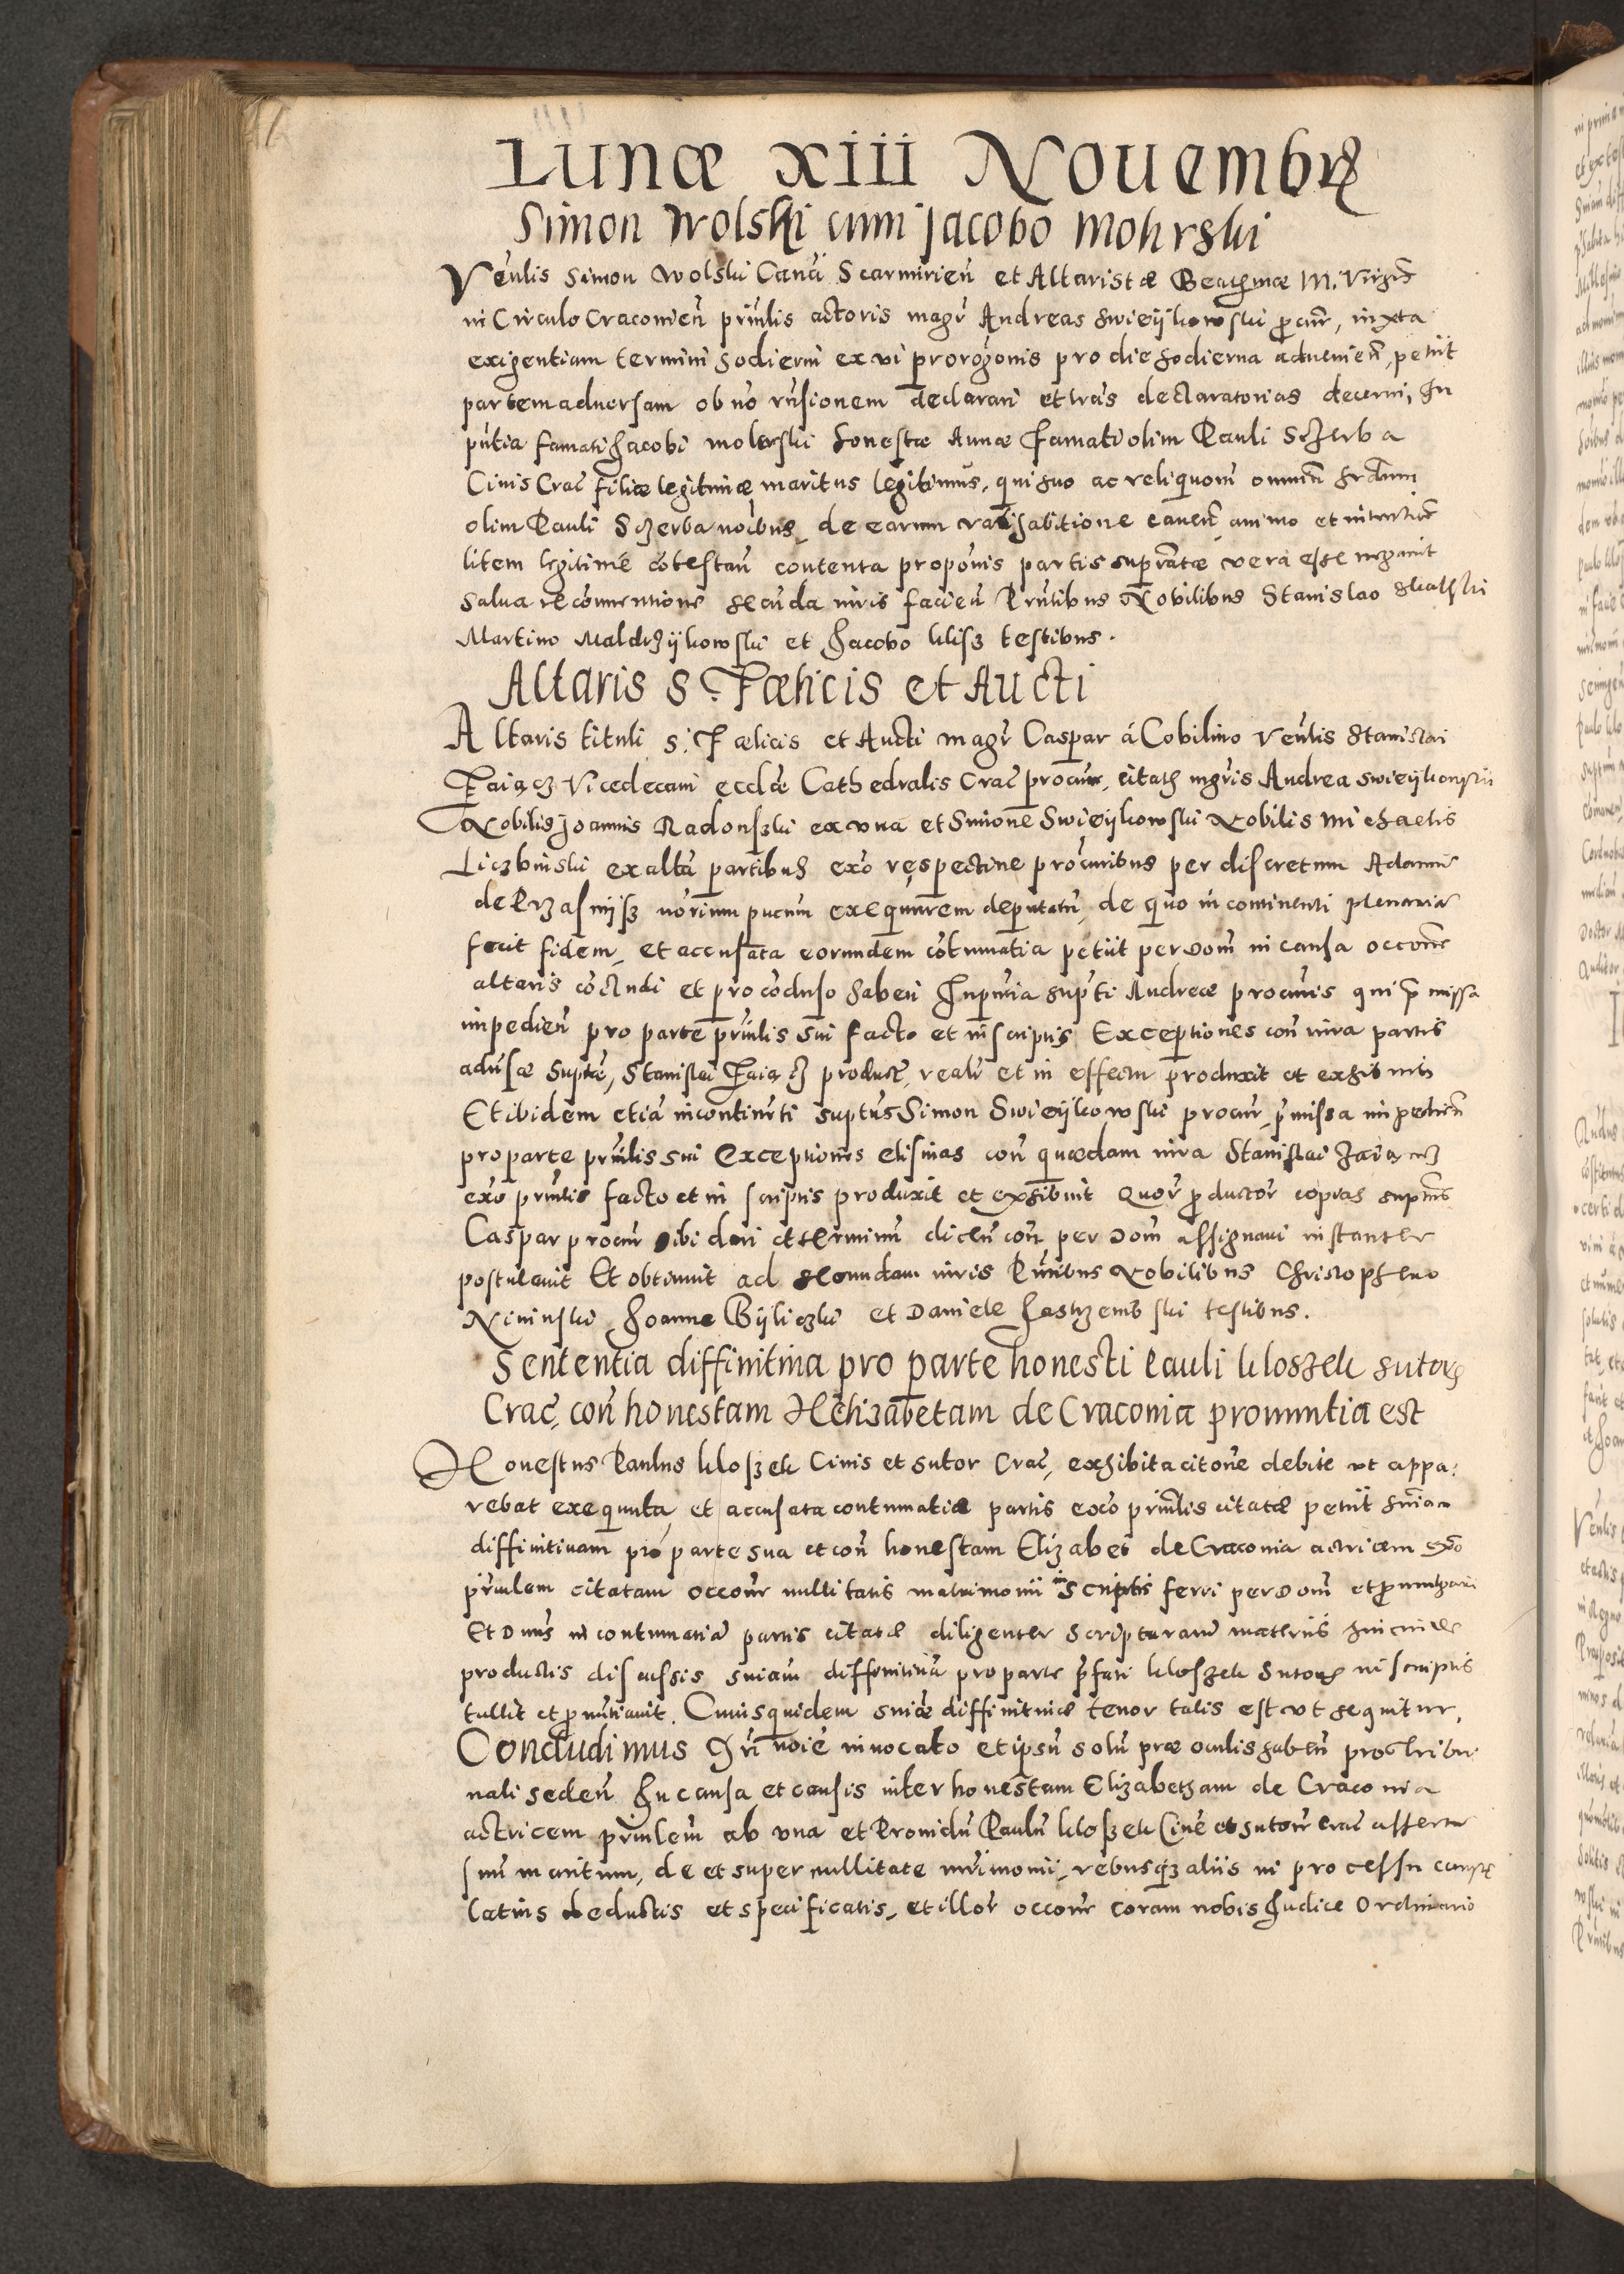 Lunæ xiii Nouembrꝭ
Simon Wolski cum Jacobo Mohrski
Venlis Simon Wolski Canci Scarmirien̄ et Altaristæ Beatꝭmæ M. Virgis
in Circulo Cracouien̄ prinlis actoris magr Andreas Swieÿkowski procur, iuxta
exigentiam termini hodierni ex vi prorogonis pro die hodierna aduenien̄, petiit
partem aduersam ob no declarari et lras declaratorias decerni, In
pntia famati Jacobi Molerski honestæ Annæ famati olim Pauli Sczerba
Ciuis Crac filiæ legitimæ maritus legitimus, qui suo ac reliquorum omnium
olim Pauli Sczerba noibus, de earum ratihabitione cauen̄, animo et intentione
litem legitime cotestan̄ contenta propoῑs partis supratæ vera esse negauit
salua reconuentione secunda iuris facien̄ Pntibus Nobilibus Stanislao Skalski
Martino Maldrzÿkowski et Jacobo Klisz testibus.
Altaris S. Fœlicis et Aucti
Altaris tituli S. Fœlicis et Aucti magr Caspar á Cobilino Venlis Stanislai
Faiącz Vicedecani eccliæ Cathedralis Crac procur, citatꝭ mgris Andrea Swieÿkowski
Nobilis Joannis Radonszki ex vna et Simone Swieÿkowski Nobilis Michaelis
Liczbinski ex altā partibus exo respectiue procuribus per discretum Adamū
de Przasnijsz norium pucum exequūrem deputatū, de quo in continenti plenariā
fecit fidem, et accusata eorundem cotumatia petiit per Dom in causa occone
altaris coctudi et pro cocluso haberi In pntia supti Andreæ procuris qui p̄missa
impedien̄ pro parte prinlis sui facto et in scriptis Exceptiones con iura partis
aduersæ suptæ, Stanislai Faiącz product, reali et in effectu produxit et exhibuit
Et ibidem etiā incontinenti suptus Simon Swieÿkowski procur, p̄missa impedien̄
pro parte prinlis sui Exceptiones elisiuas con quædam iura Stanislai Faiącz
exo prinlis facto et in scriptis produxit et exhibuit Quor productor copias supnus
Caspar procur sibi dari et terminū dicen̄ con per Dom assignari instanter
postulauit Et obtinuit ad secundam iuris Pntibus Nobilibus Christophero
Niniuski Joanne Bÿliczki et Daniele Jastrzembski testibus.
Sententia diffinitiua pro parte honesti Pauli Kloszek sutorꝭ
Crac, con honestam Helizabetam de Craconia pronuntia est
Honestus Paulus Kloszek Ciuis et Sutor Crac, exhibita citone debite vt appa:
rebat exequuta, et accusata contumatia partis exo prinlis citatæ petiit sniam
diffinitiuam pro parte sua et con honestam Elizabet de Craconia actricem exo
prinlem citatam occone nullitatis matrimonii in scriptis ferri per Dom et pronuntiari
Et Dnus in contumatia partis citatæ diligenter scripturarū materiis
productis discussis sniam diffinitiuā pro parte p̄fati Kloszek Sutorꝭ in scriptis
tullit et pronūtiauit. Cuiusquidem sniæ diffinitiuæ tenor talis est vt sequitur,
Concludimus Xri noie inuocato et ipsū solū præ oculis haben̄ pro tribu:
nali seden̄ In causa et causis inter honestam Elizabetham de Craconia
actricem prinlem ab vna et Prouidū Paulū Kloszek Ciuē et sutorē Crac assertū
suū maritum, de et super nullitate mrimonii, rebusqꝫ aliis in processu causæ
latius deductis et specificatis, et illor occone coram nobis Judice Ordinario